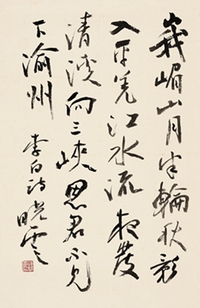 峩嵋山月半輪秋影
入平羌江水流夜發
清溪向三峽思君不見
下渝州 李白詩 曉雲